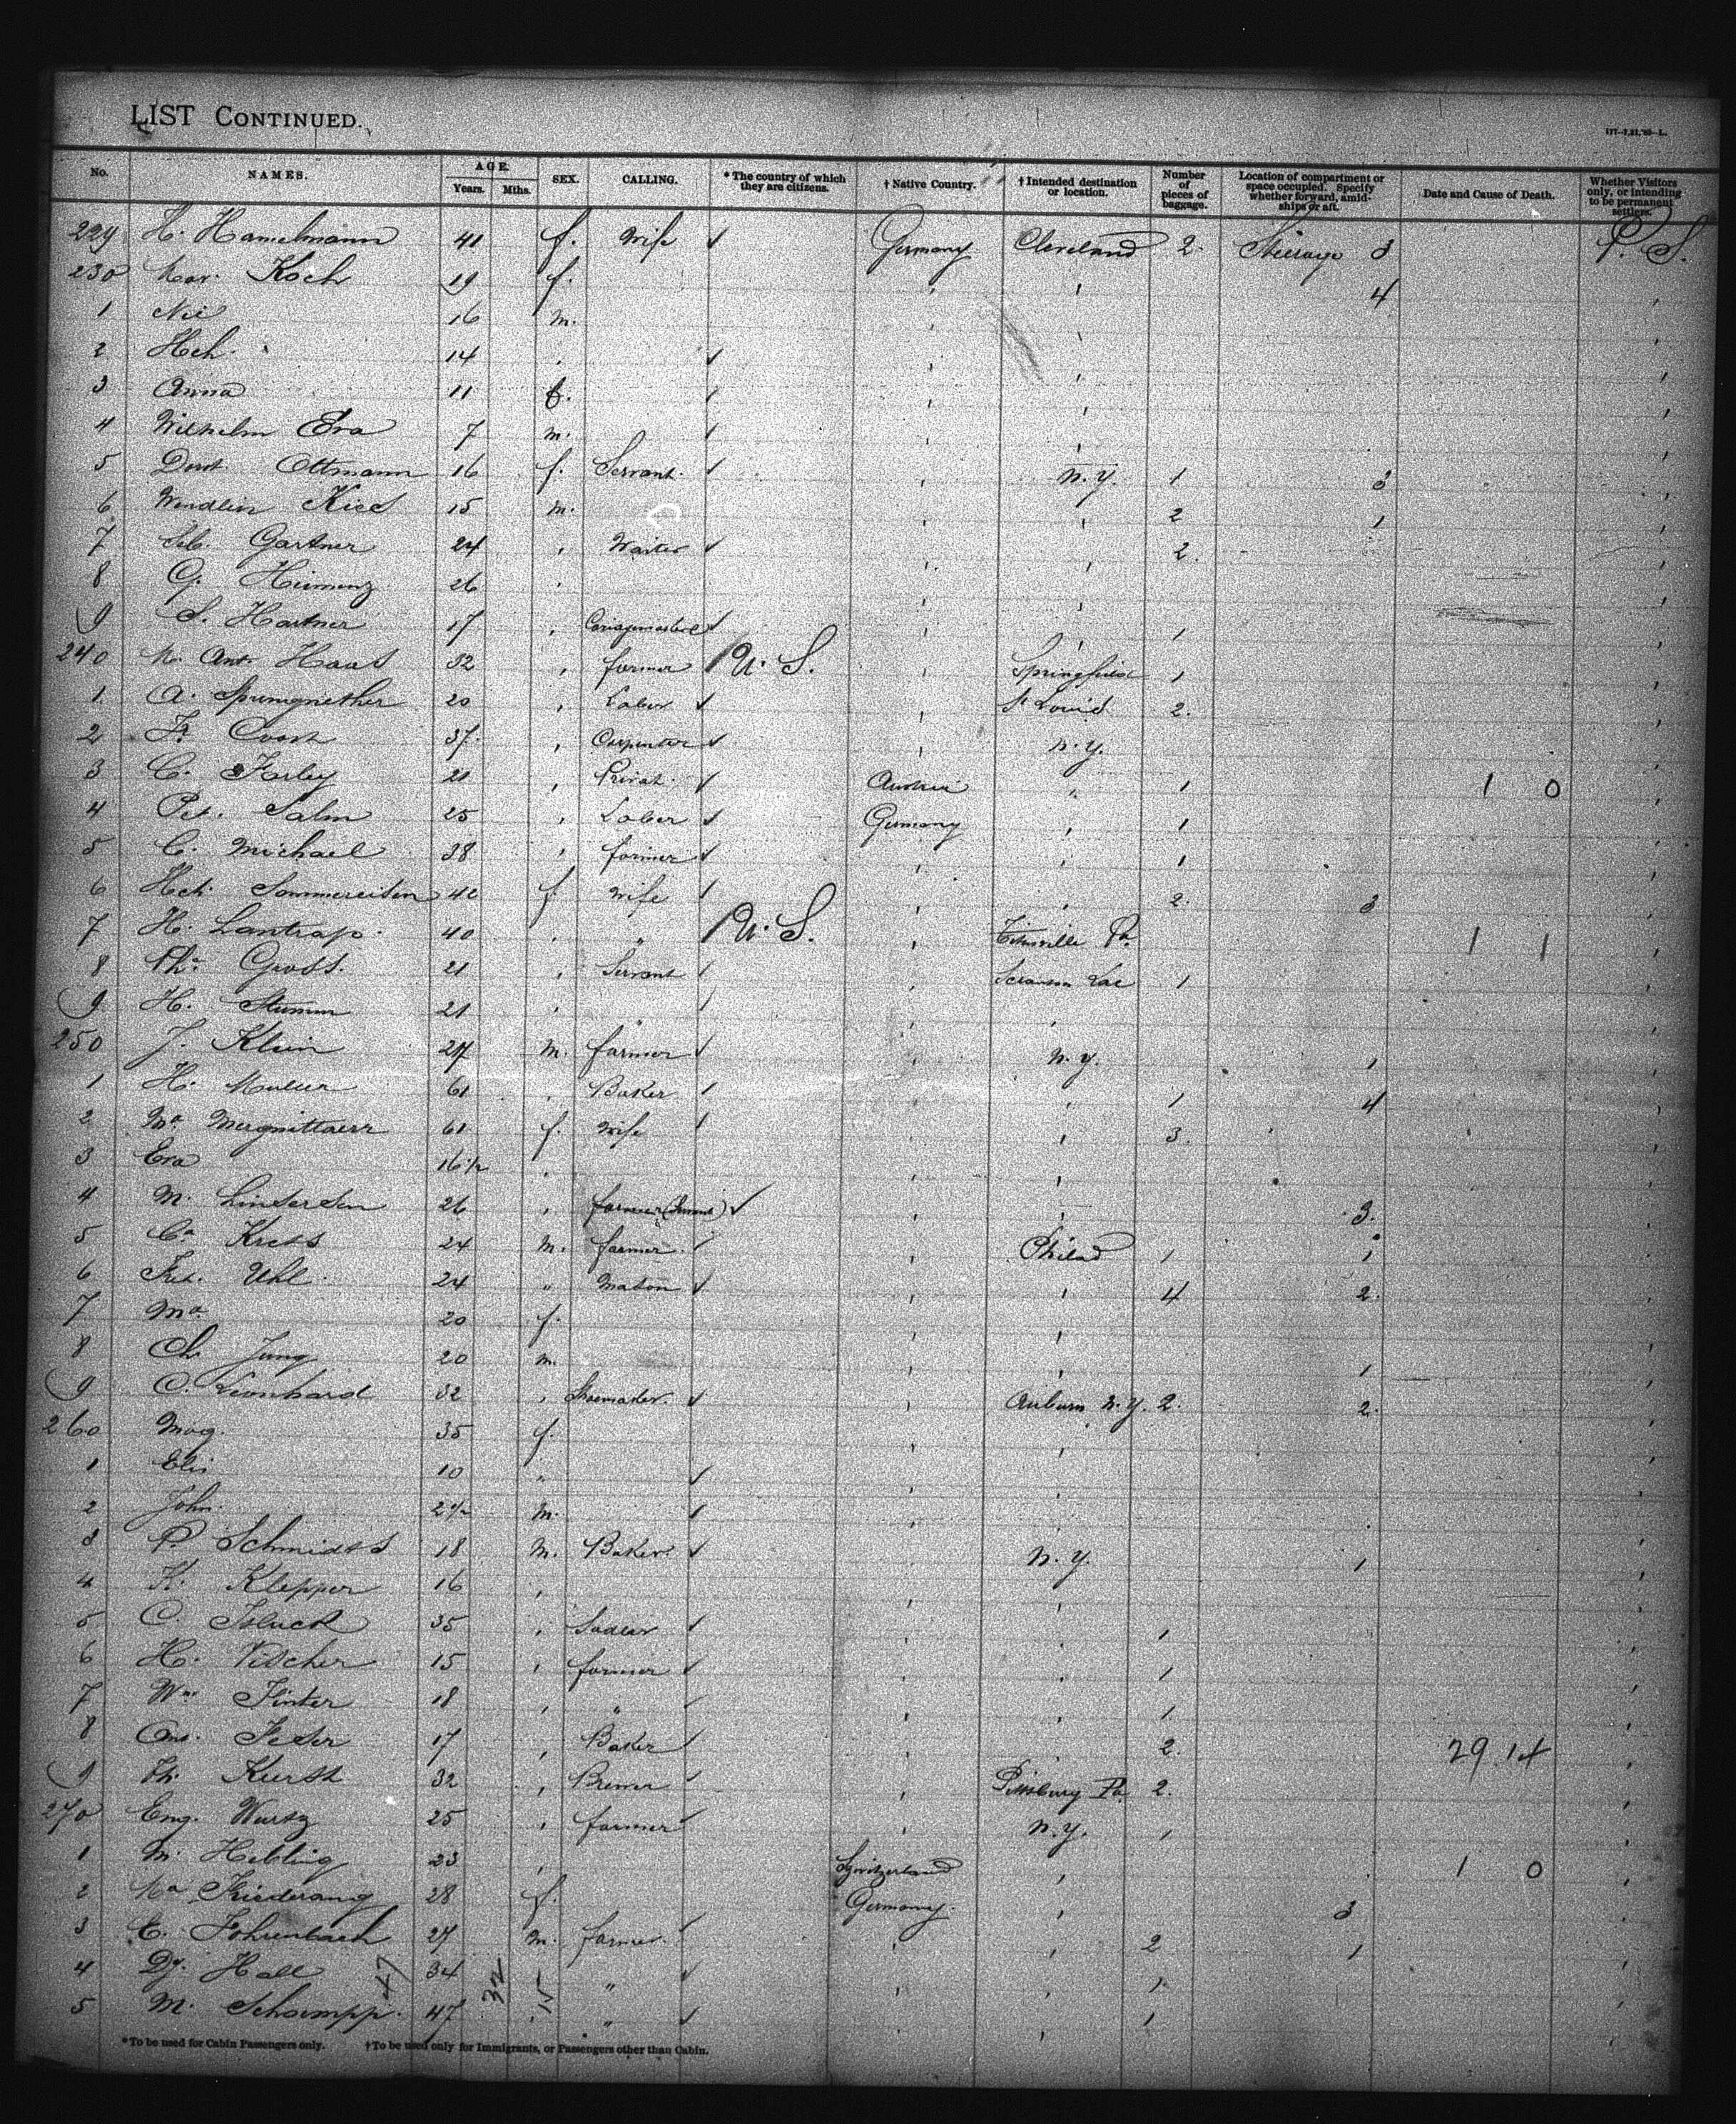 LIST CONTINUED.
177-7,21,'89-L.
No. NAMES. AGE. Years. Mths. SEX. CALLING. * The country of which they are citizens. † Native Country. † Intended destination or location. Number of pieces of baggage. Location of compartment or space occupied. Specify whether forward, amidships or aft. Date and Cause of Death. Whether Visitors only, or intending to be permanent settlers.
229 H. Hamelmann 41 f. Wife ✓ Germany Cleveland 2. Steerage 3 P. S.
230 Mar. Koch 19 f. 4
1 Nic 16 m.
2 Hch. 14 ✓
3 Anna 11 f.
4 Wilhelm Eva 7 m.
5 Dorot. Ottmann 16 f. Servant. ✓ N.Y. 1 3
6 Wendlin Kies 15 m. 2 1
7 Seb. Gartner 24 Waiter ✓ 2.
8 G. Heimenz 26
9 S. Hartner 17 ✓ 1
240 Ant. Haas 32 farmer U. S. Springfield 1
1 A. Sprungnether 20 Labor ✓ St Louis 2.
2 37 Carpenter ✓ N.Y.
3 C. Farley 21 Privat. ✓ Austria " 1 1 0
4 Pet. Salm 25 Labor ✓ Germany 1
5 C. Michael 38 farmer ✓ 1
6 Sommereisen 42 f. Wife 2. 3
7 H. Lantrap. 40 " U. S. Titusville Pa. 1 1
8 Gross. 21 Servant 1
9 H. Stumm 21
250 J. Klein 27 m. farmer ✓ N.Y. 1
1 H. 61 Baker 1 4
2 Ma 61 f. Wife 3.
3 Eva 16½
4 M. 26 farmer (Servant) ✓ 3.
5 Ca Kress 24 m. farmer Philad 1 1
6 Uhl 24 " Mason ✓ 4 2.
7 Ma 20 f.
8 Ch. Jung 20 m. 1
9 C. Leonhard 32 Shoemaker. ✓ Auburn N.Y. 2. 2.
260 Mag. 35 f.
1 Elis 10 " ✓
2 John. m. ✓
3 P. Schmidts 18 m. Baker. ✓ N.Y. 1
4 K. Klepper 16
5 C. 35 Sadler ✓ 1
6 H. Vischer 15 farmer ✓ 1
7 Wm Finter 18 " 1
8 Feser 17 Baker 2. 29.14
9 Kursh 32 Brewer Pittsburg Pa. 2.
270 Eug. Wurtz 25 farmer N.Y. 1
1 M. Helbling 23 Switzerland 1 0
2 Friederang 28 f. Germany. 3
3 C. Fohrenbach 27 m. farmer 2 1
4 Hall 34 " ✓ 1
5 M. Schrimpp. 47 " ✓ 1
47 32 15
* To be used for Cabin Passengers only. † To be used only for Immigrants, or Passengers other than Cabin.